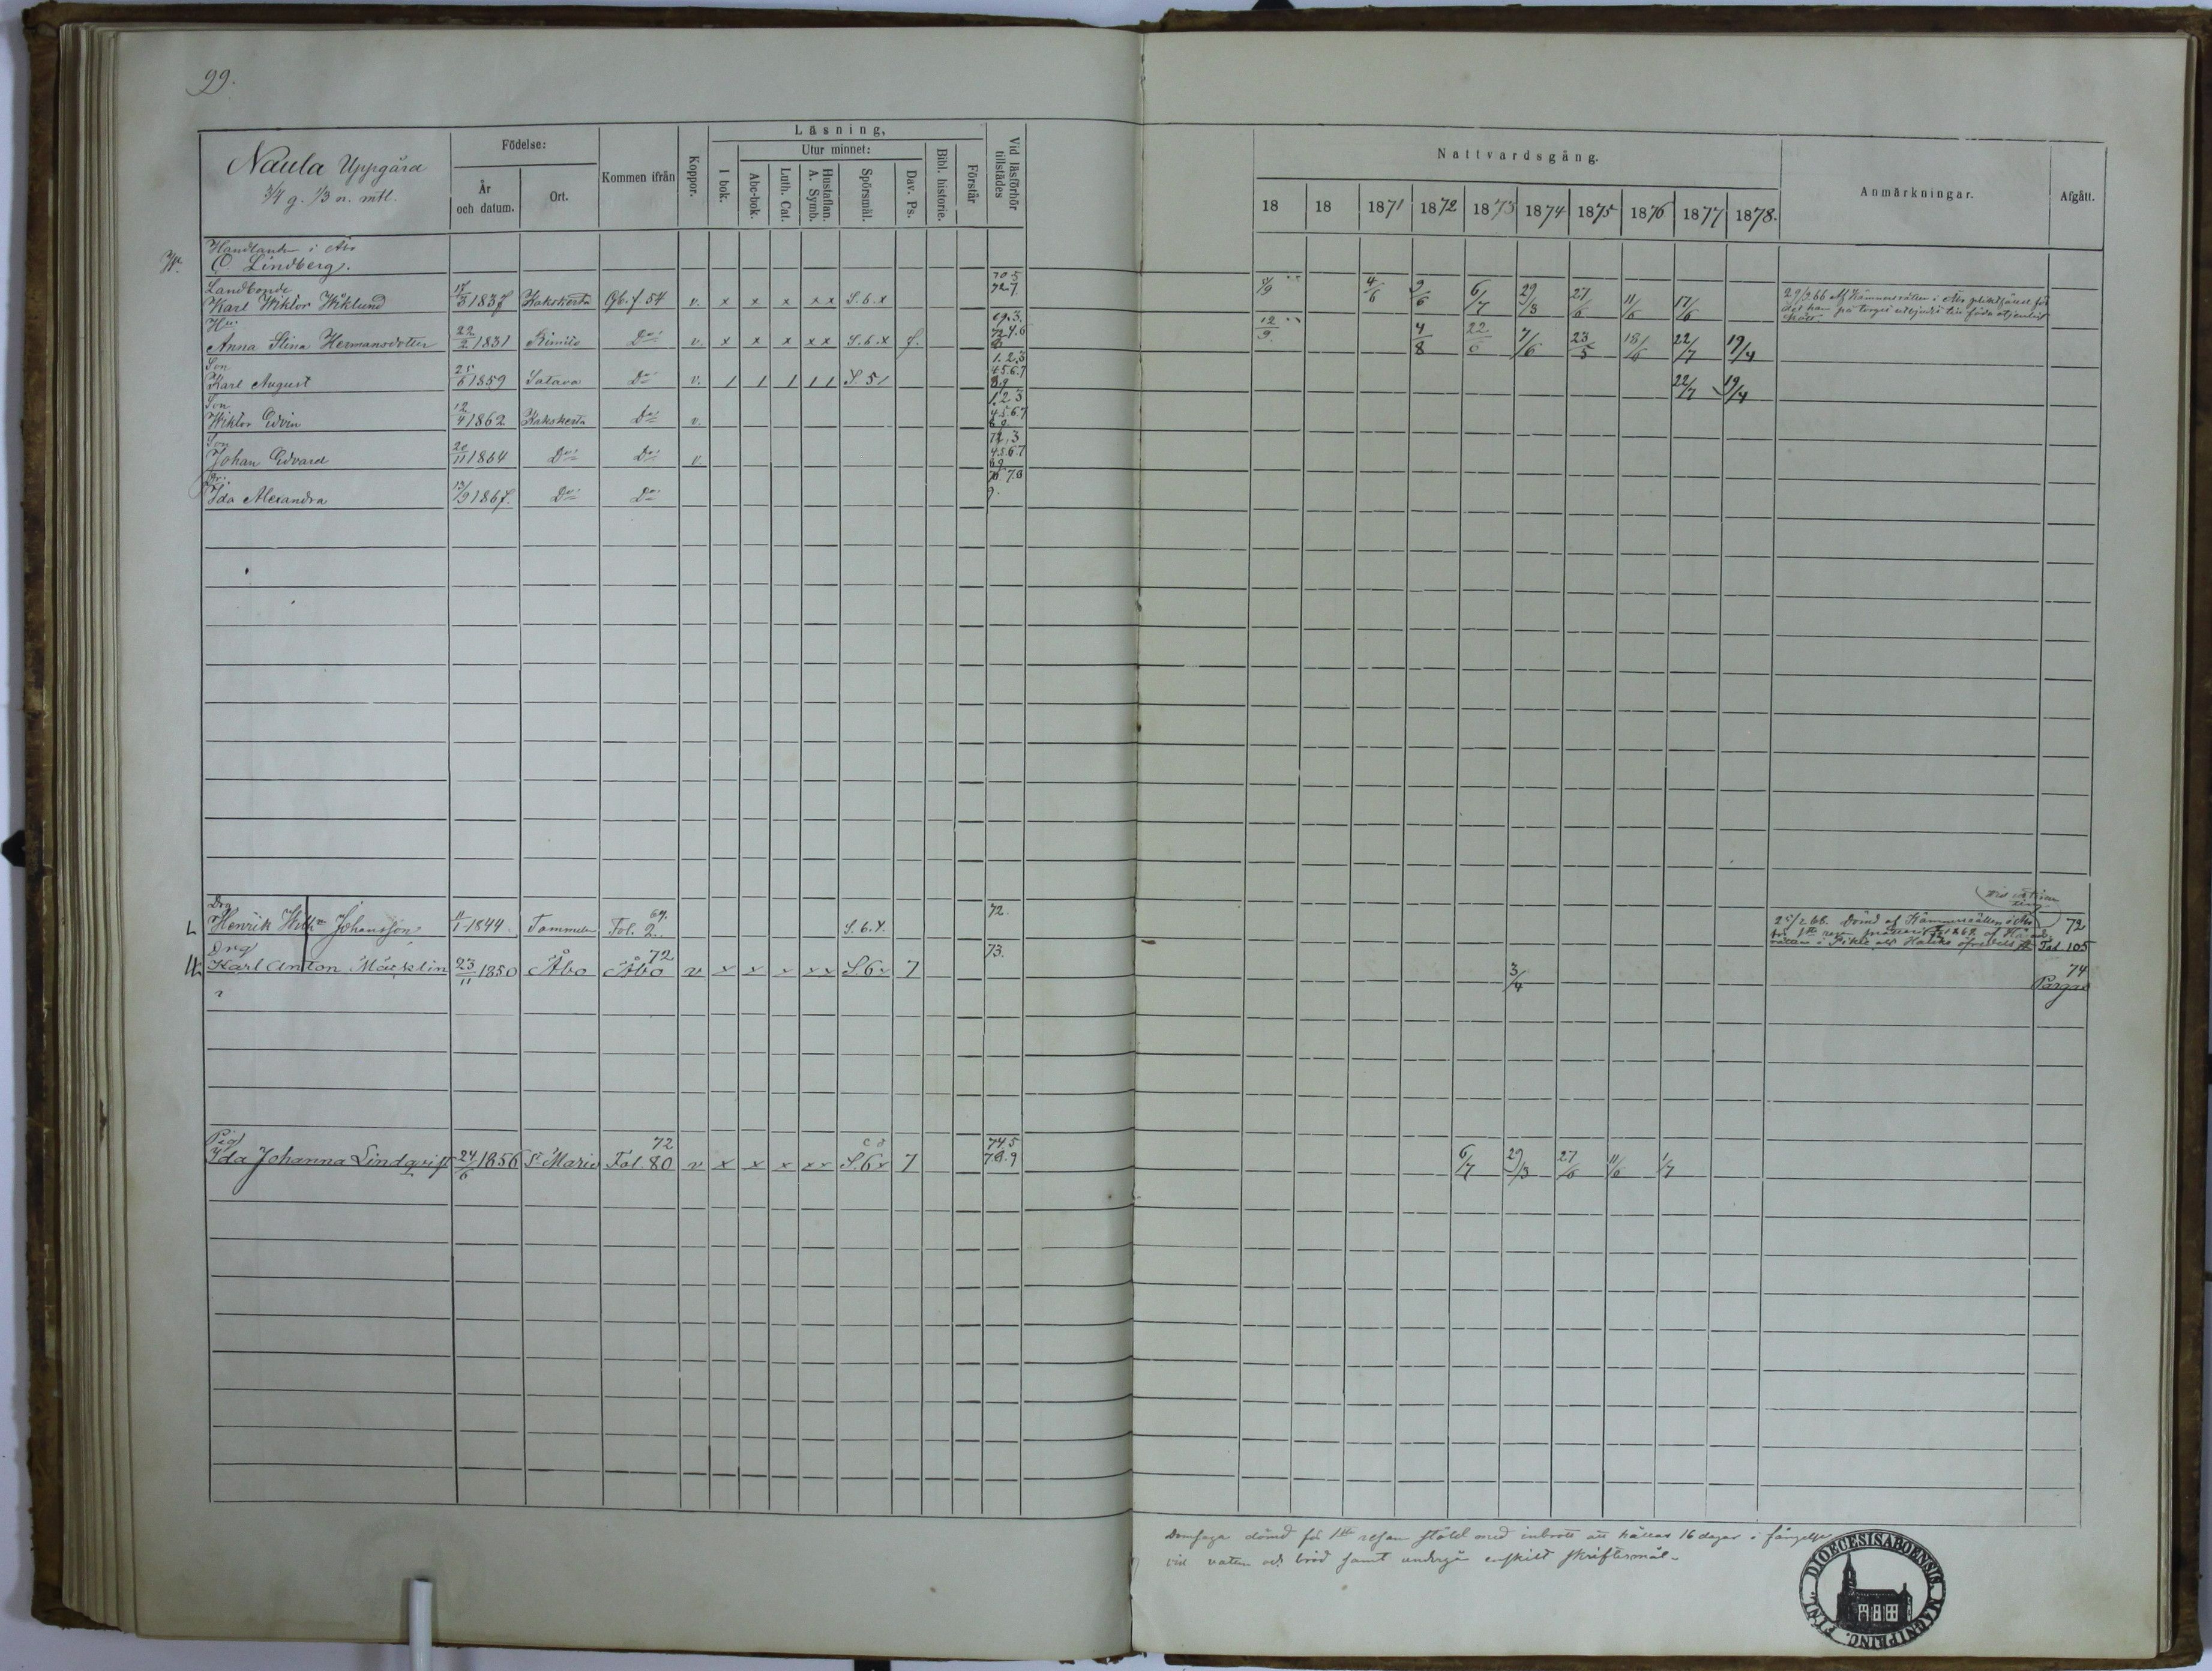 99.
Läsning,
Födelse:
Utur minnet:
Nattvardsgång.
Naula Uppgård
3/4 g. 1/3 n. mtl.
År och datum.
Ort.
Kommen ifrån
Koppor.
I bok.
Abc-bok.
Luth. Cat.
Hustaflan. A. Symb.
Spörsmål.
Dav. Ps.
Bibl. historie.
Förstår
Vid läsförhör tillstädes
18 18 1871 1872 1873 1874 1875 1876 1877 1878.
Anmärkningar.
Afgått.
Handlanden i Åbo
O. Lindberg.
Landbonde 70 5
Karl Wiktor Wiklund 17/3 1837 Kakskerta Gb. f. 54 v. x x x x x S. 6. x 72 7. 4/6 9/6 6/7 29/3 27/6 11/6 17/6
29/9 66 Af Kämnersrätten i Åbo pliktfälld för
det han på torget utbjudit till föda otjenligt
kött.
Hu: 69. 3.
Anna Stina Hermansdotter 22/2 1831 Kimito Do v. x x x x x S. 6. x 7. 12/9 4/8 22/6 7/6 23/5 18/6 22/7 19/4
Son 1. 2. 3
Karl August 25/6 1859 Satava Do v. / / / / / S. 5 / 4 5. 6. 7 8. 9 22/7 19/4
Son 1. 2 3
Wiktor Edvin 12/4 1862 Kakskerta Do v. 4. 5. 6. 7
Son 72, 3
Johan Edvard 20/11 1864 Do Do v. 4. 5. 6. 7
Ida Alexandra 13/9 1867. Do Do 9.
Drg 69. 72.
L Henrik Wilh. Johansson 11/1 1844. Tammela Fol. 2. S. 6. Y.
25/2 68. Dömd af Kämnersrätten i Åbo 72
för 1sta resan af Härads
rätten i Pikis och Haliko Fol. 105
Drg 72 73.
Karl Anton Mäcklin 23/11 1850 Åbo Åbo v x x x x x S. 6 x 7 3/4 74
Pargas
Pig 72 74 5
Ida Johanna Lindqvist 24/6 1856 St Marie Fol. 80 v x x x x x S. 6 x 7 78. 9 6/7 29/3 27/6 11/6 1/7
Domsaga dömd för 1sta resan stöld med inbrott att hållas 16 dagar i fängelse
vid vatten och bröd samt undergå enskildt skriftermål.
DIOECESIS ABOENSIS MAGNI PRINC. FINL.